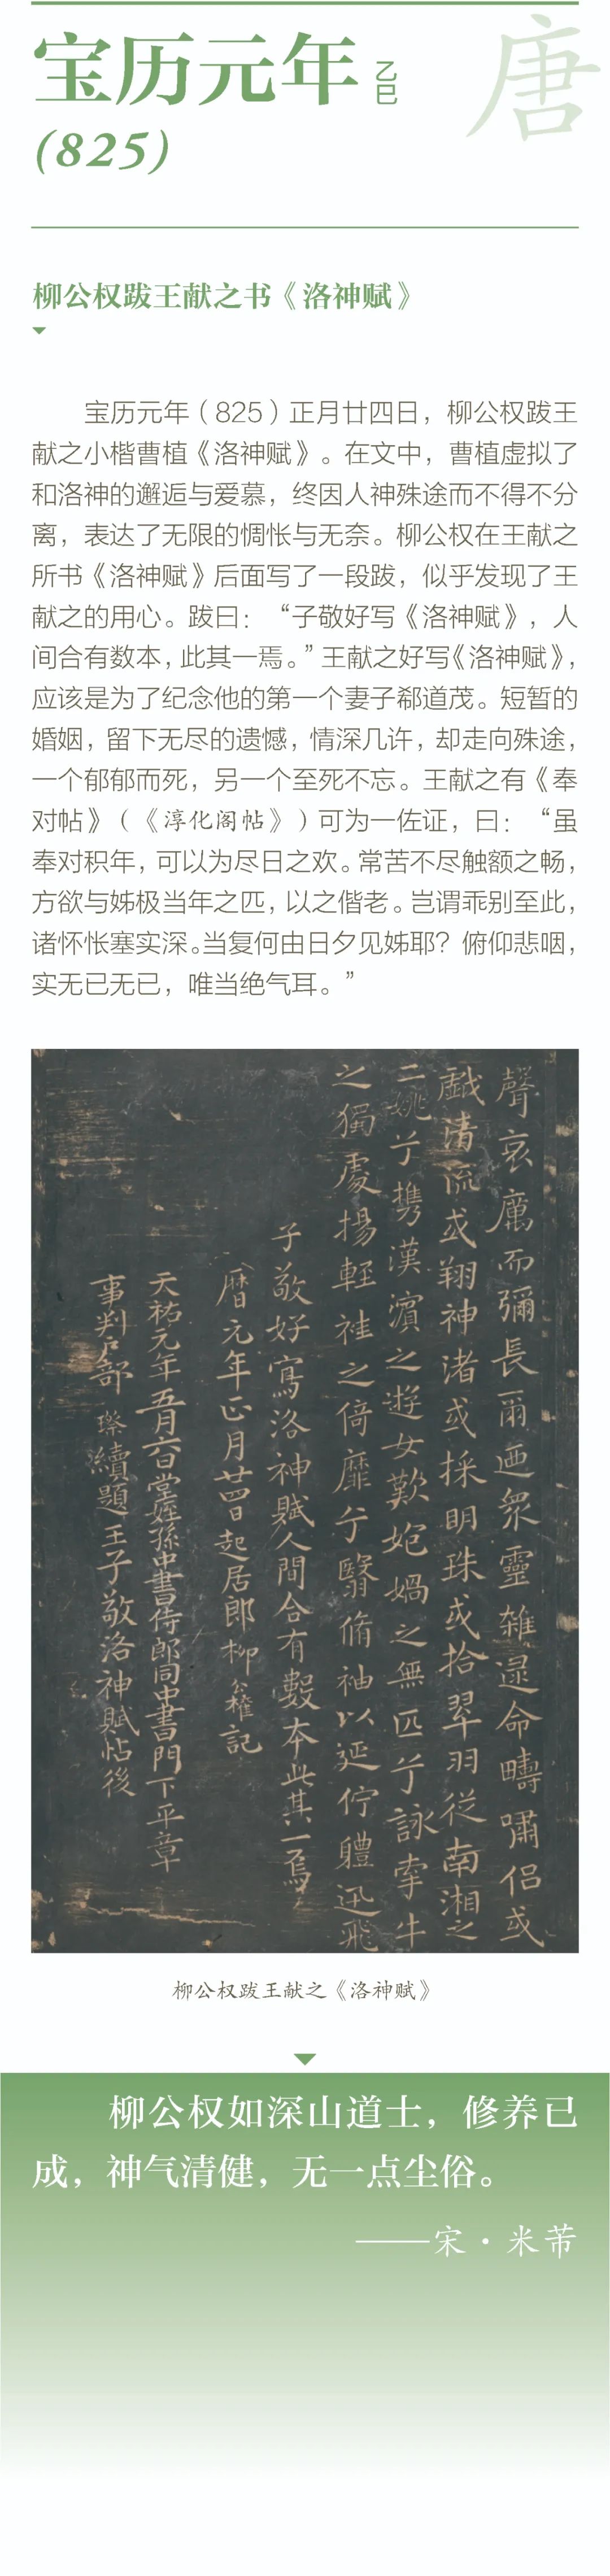 宝历元年 乙巳
(825)
唐
柳公权跋王献之书《洛神赋》
宝历元年（825）正月廿四日，柳公权跋王
献之小楷曹植《洛神赋》。在文中，曹植虚拟了
和洛神的邂逅与爱慕，终因人神殊途而不得不分
离，表达了无限的惆怅与无奈。柳公权在王献之
所书《洛神赋》后面写了一段跋，似乎发现了王
献之的用心。跋曰：“子敬好写《洛神赋》，人
间合有数本，此其一焉。”王献之好写《洛神赋》，
应该是为了纪念他的第一个妻子郗道茂。短暂的
婚姻，留下无尽的遗憾，情深几许，却走向殊途，
一个郁郁而死，另一个至死不忘。王献之有《奉
对帖》（《淳化阁帖》）可为一佐证，曰：“虽
奉对积年，可以为尽日之欢。常苦不尽触额之畅，
方欲与姊极当年之匹，以之偕老。岂谓乖别至此，
诸怀怅塞实深。当复何由日夕见姊耶？俯仰悲咽，
实无已无已，唯当绝气耳。”
聲哀厲而彌長爾迺衆靈雜遝命疇嘯侣或
戲清流或翔神渚或採明珠或拾翠羽從南湘之
二姚兮携漢濱之遊女歎匏媧之無匹兮詠牽牛
之獨處揚輕袿之倚靡兮翳脩袖以延佇體迅飛
子敬好寫洛神賦人間合有數本此其一焉
曆元年正月廿四日起居郎柳公權記
天祐元年五月六日堂姪孫中書侍郎同中書門下平章
事判户部璨續題王子敬洛神賦帖後
柳公权跋王献之《洛神赋》
柳公权如深山道士，修养已
成，神气清健，无一点尘俗。
——宋·米芾